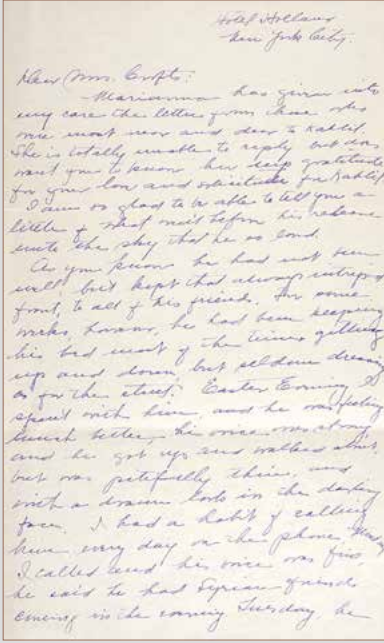 Hotel Holland
New York City.
Dear Mrs. Crofts:
Marianna has given into
my care the letters from those who
were most near and dear to Kahlil.
She is totally unable to reply but does
want you to know her deep gratitude
for your love and solicitude for Kahlil
I am so glad to be able to tell you a
little of what went before his release
unto the sky that he so loved.
As you know he had not been
well but kept that always intrepid
front, to all of his friends. For some
weeks, however, he had been keeping
his bed most of the time, getting
up and down, but seldom dressing
as for the street. Easter Evening I
spent with him, and he was feeling
much better, his voice was strong
and he got up and walked about,
but was pitifully thin, and
with a drawn look in the darling
face. I had a habit of calling
him every day on the phone, Monday
I called and his voice was fine,
he said he had Syrian friends
coming in the evening Tuesday, he